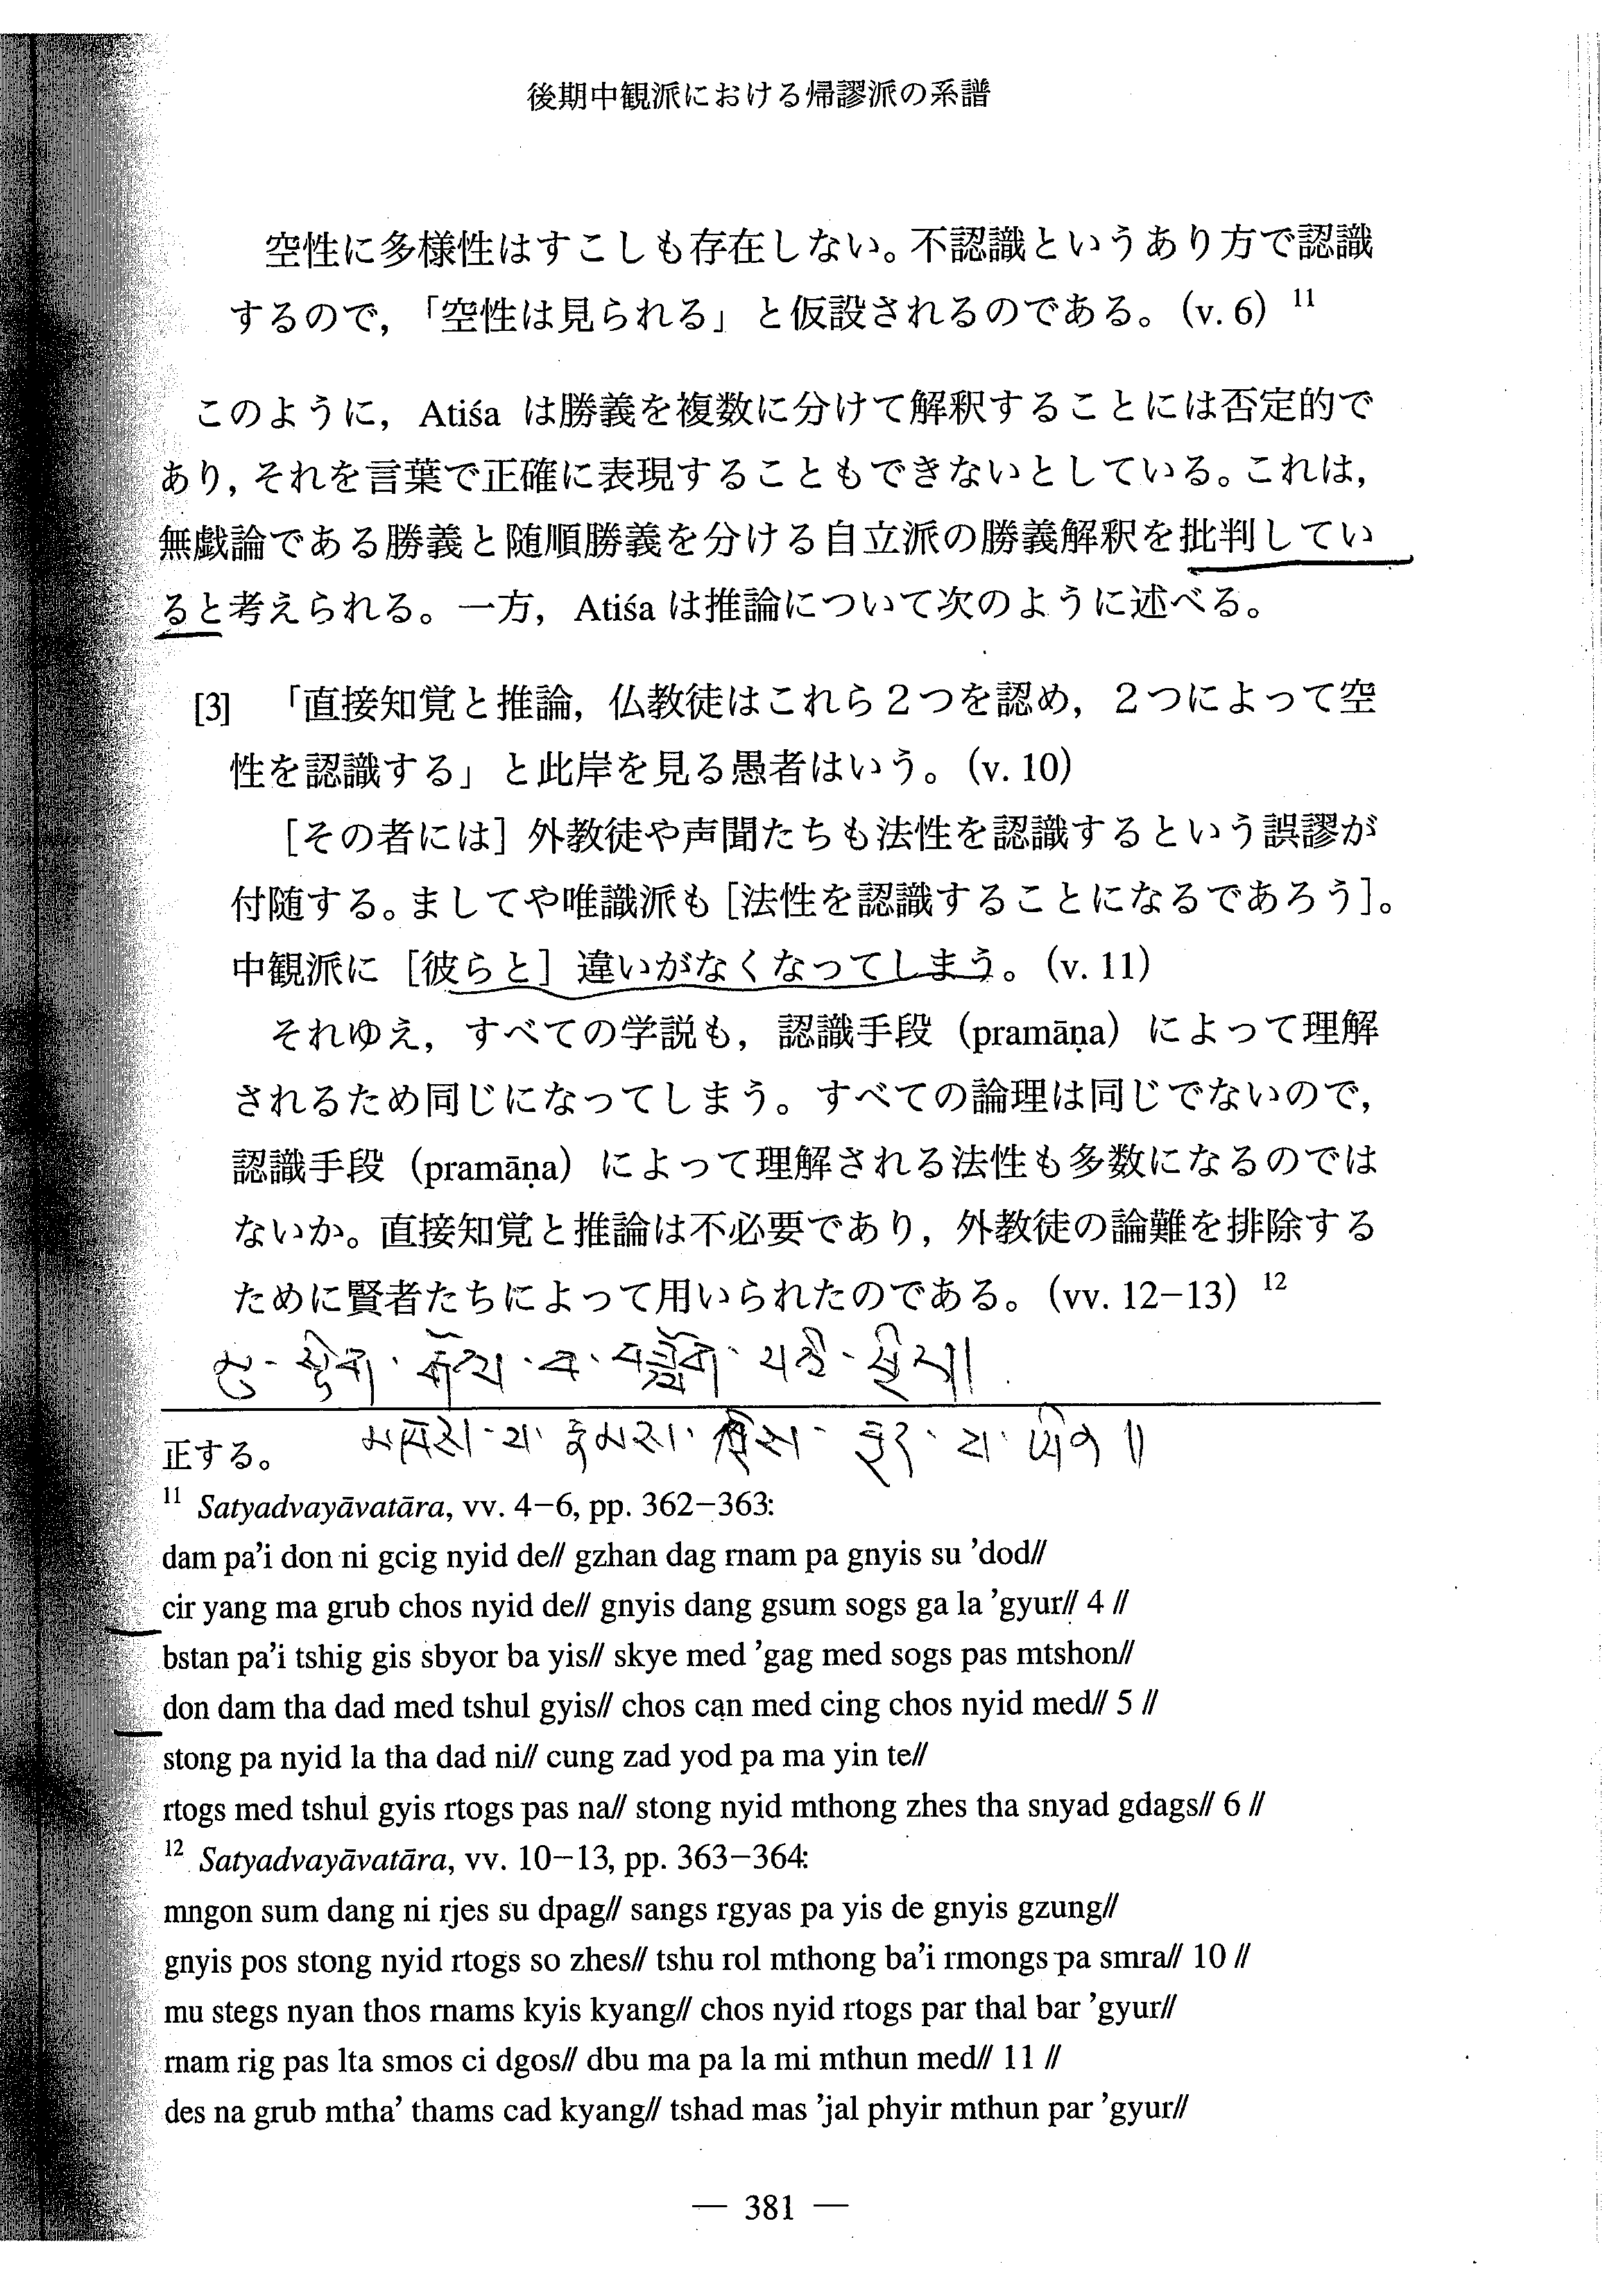 後期中観派における帰謬派の系譜
空性に多様性はすこしも存在しない。不認識というあり方で認識
するので，「空性は見られる」と仮設されるのである。（v. 6）11
このように，Atiśa は勝義を複数に分けて解釈することには否定的で
あり，それを言葉で正確に表現することもできないとしている。これは，
無戯論である勝義と随順勝義を分ける自立派の勝義解釈を批判してい
ると考えられる。一方，Atiśa は推論について次のように述べる。
[3] 「直接知覚と推論，仏教徒はこれら２つを認め，２つによって空
性を認識する」と此岸を見る愚者はいう。（v. 10）
［その者には］外教徒や声聞たちも法性を認識するという誤謬が
付随する。ましてや唯識派も［法性を認識することになるであろう］。
中観派に［彼らと］違いがなくなってしまう。（v. 11）
それゆえ，すべての学説も，認識手段（pramāṇa）によって理解
されるため同じになってしまう。すべての論理は同じでないので，
認識手段（pramāṇa）によって理解される法性も多数になるのでは
ないか。直接知覚と推論は不必要であり，外教徒の論難を排除する
ために賢者たちによって用いられたのである。（vv. 12–13）12
མུ་སྟེག་རྒོལ་བ་བཟློག་པའི་ཕྱིར།།
མཁས་པ་རྣམས་ཀྱིས་ པ་ཡིན།།
正する。
11 Satyadvayāvatāra, vv. 4–6, pp. 362–363:
dam pa’i don ni gcig nyid de// gzhan dag rnam pa gnyis su ’dod//
cir yang ma grub chos nyid de// gnyis dang gsum sogs ga la ’gyur// 4 //
bstan pa’i tshig gis sbyor ba yis// skye med ’gag med sogs pas mtshon//
don dam tha dad med tshul gyis// chos can med cing chos nyid med// 5 //
stong pa nyid la tha dad ni// cung zad yod pa ma yin te//
rtogs med tshul gyis rtogs pas na// stong nyid mthong zhes tha snyad gdags// 6 //
12 Satyadvayāvatāra, vv. 10–13, pp. 363–364:
mngon sum dang ni rjes su dpag// sangs rgyas pa yis de gnyis gzung//
gnyis pos stong nyid rtogs so zhes// tshu rol mthong ba’i rmongs pa smra// 10 //
mu stegs nyan thos rnams kyis kyang// chos nyid rtogs par thal bar ’gyur//
rnam rig pas lta smos ci dgos// dbu ma pa la mi mthun med// 11 //
des na grub mtha’ thams cad kyang// tshad mas ’jal phyir mthun par ’gyur//
— 381 —